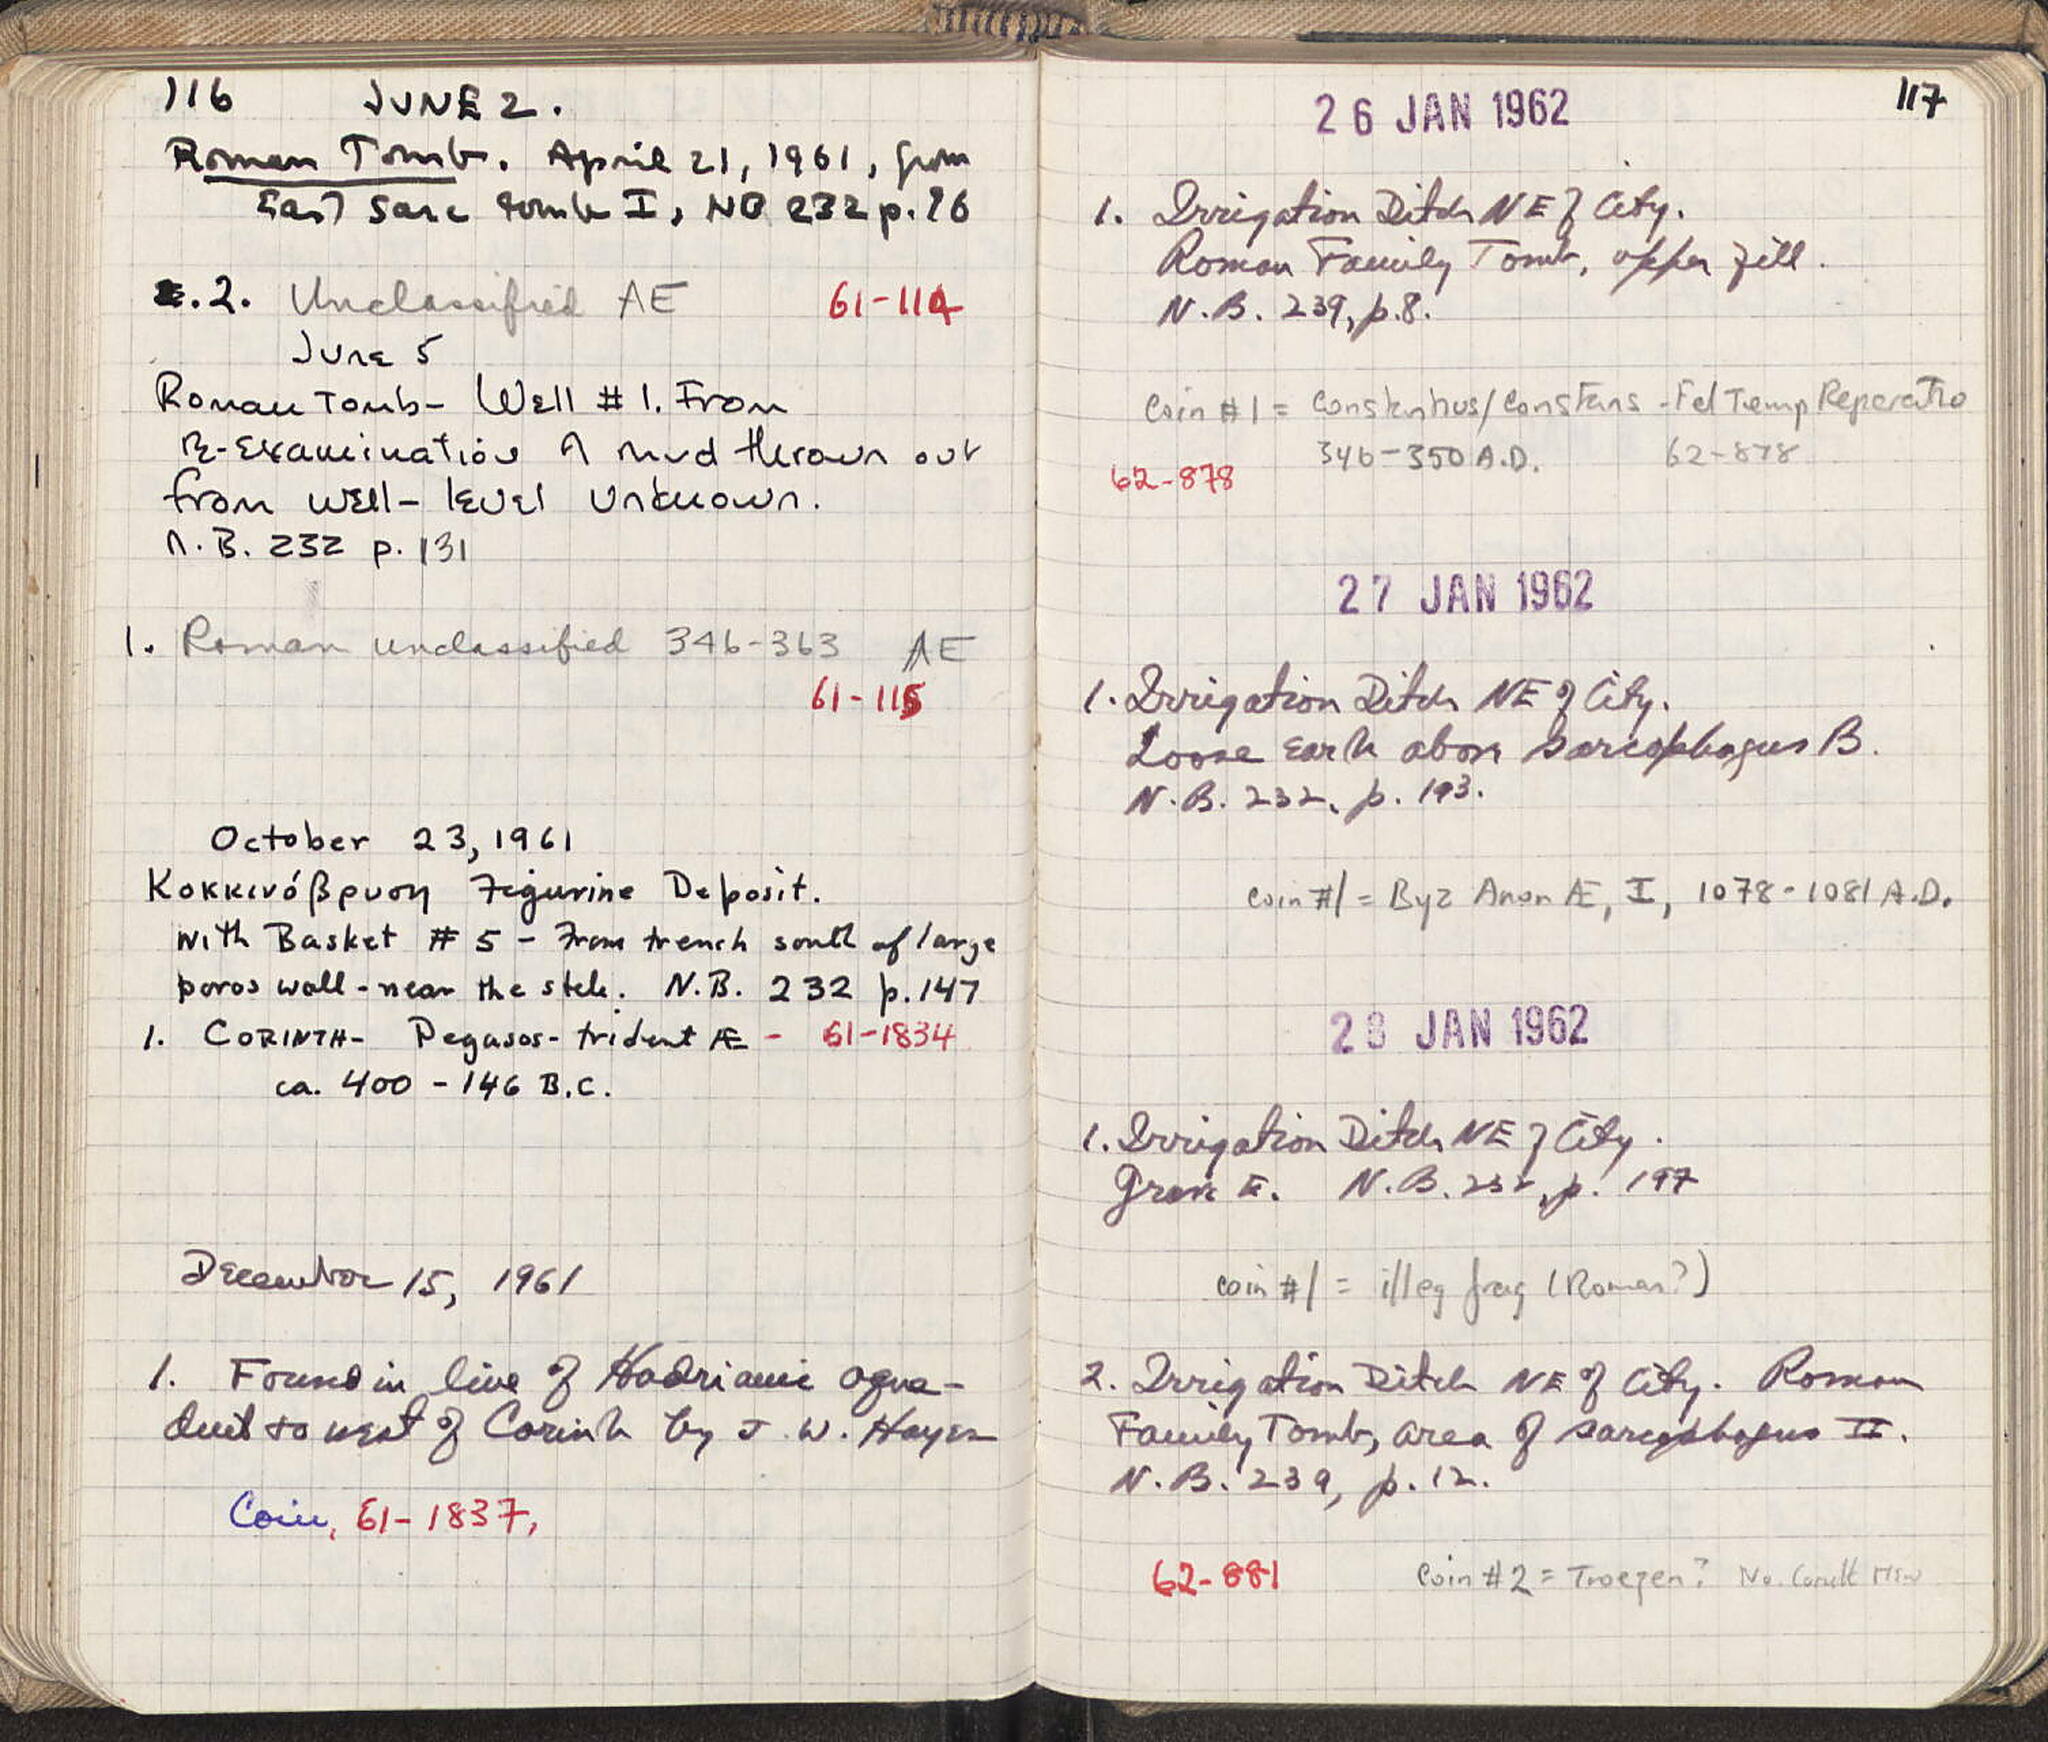 116 JUNE 2.
Roman Tomb. April 21, 1961, from
East Sarc tomb I, NB 232 p.76
2. Unclassified AE 61-114
June 5
Roman Tomb- Well #1. From
re-examination of mud thrown out
from well- level unknown.
N.B. 232 p. 131
1. Roman unclassified 346-363 AE
61-115
October 23, 1961
Κοκκινόβρυση Figurine Deposit.
with Basket #5 - From trench south of large
poros wall - near the stele. N.B. 232 p.147
1. CORINTH- Pegasos- trident Æ - 61-1834
ca. 400 - 146 B.C.
December 15, 1961
1. Found in line of Hadrianic aque-
duct to west of Corinth by J. W. Hayes
Coin, 61-1837,
117
26 JAN 1962
1. Irrigation Ditch NE of City.
Roman Family Tomb, upper fill.
N.B. 239, p.8.
Coin #1 = Constantius/Constans - Fel Temp Reparatio
346-350 A.D. 62-878
62-878
27 JAN 1962
1. Irrigation Ditch NE of City.
Loose earth above sarcophagus B.
N.B. 232, p. 193.
coin #1 = Byz Anon Æ, I, 1078-1081 A.D.
28 JAN 1962
1. Irrigation Ditch NE of City.
Grave E. N.B. 232, p. 197
coin #1 = illeg frag (Roman?)
2. Irrigation Ditch NE of City. Roman
Family Tomb, area of sarcophagus II.
N.B. 239, p.12.
62-881 coin #2 = Troezen? No.